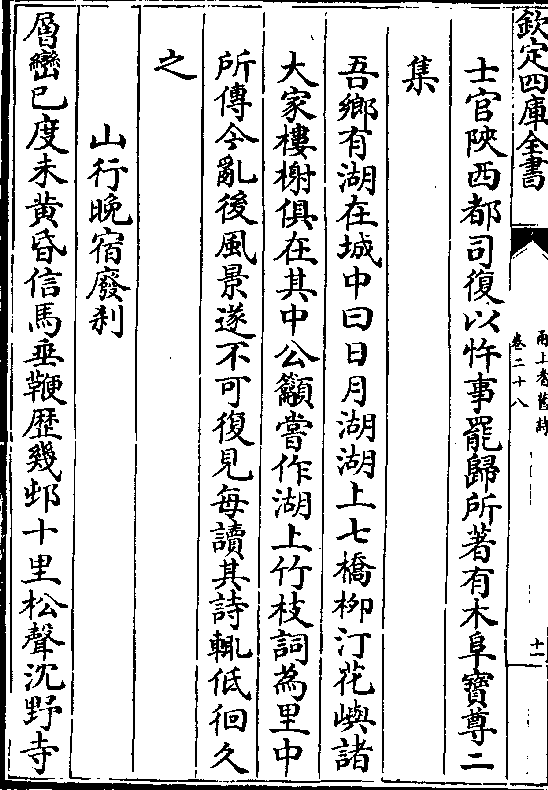 欽定四庫全書
甬上耆舊詩
卷二十八
十一
士官陝西都司復以忤事罷歸所著有木阜寶尊二
集
吾鄉有湖在城中曰日月湖湖上七橋栁汀花嶼諸
大家樓榭俱在其中公籲嘗作湖上竹枝詞為里中
所傳今亂後風景遂不可復見每讀其詩輒低徊久
之
山行晩宿廢刹
層巒已度未黄昏信馬垂鞭歴幾邨十里松聲沉野寺